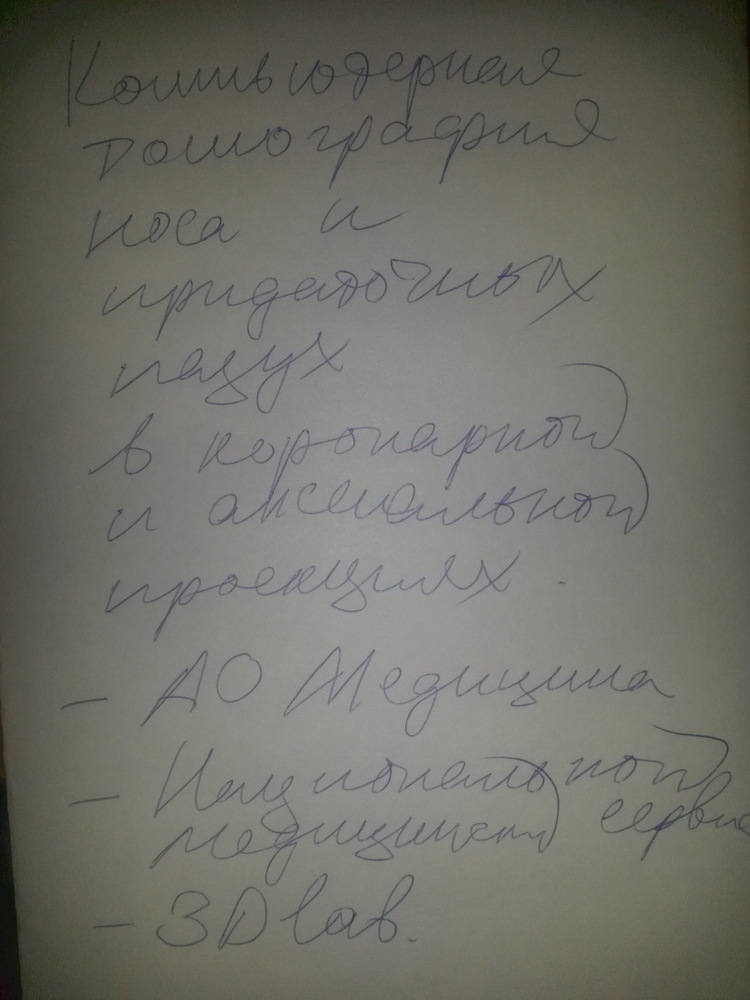 Компьютерная
томография
носа и
придаточных
пазух
в коронарной
и аксиальной
проекциях.
- АО Медицина
- Национальной
медицинский сервис
- 3D lab.